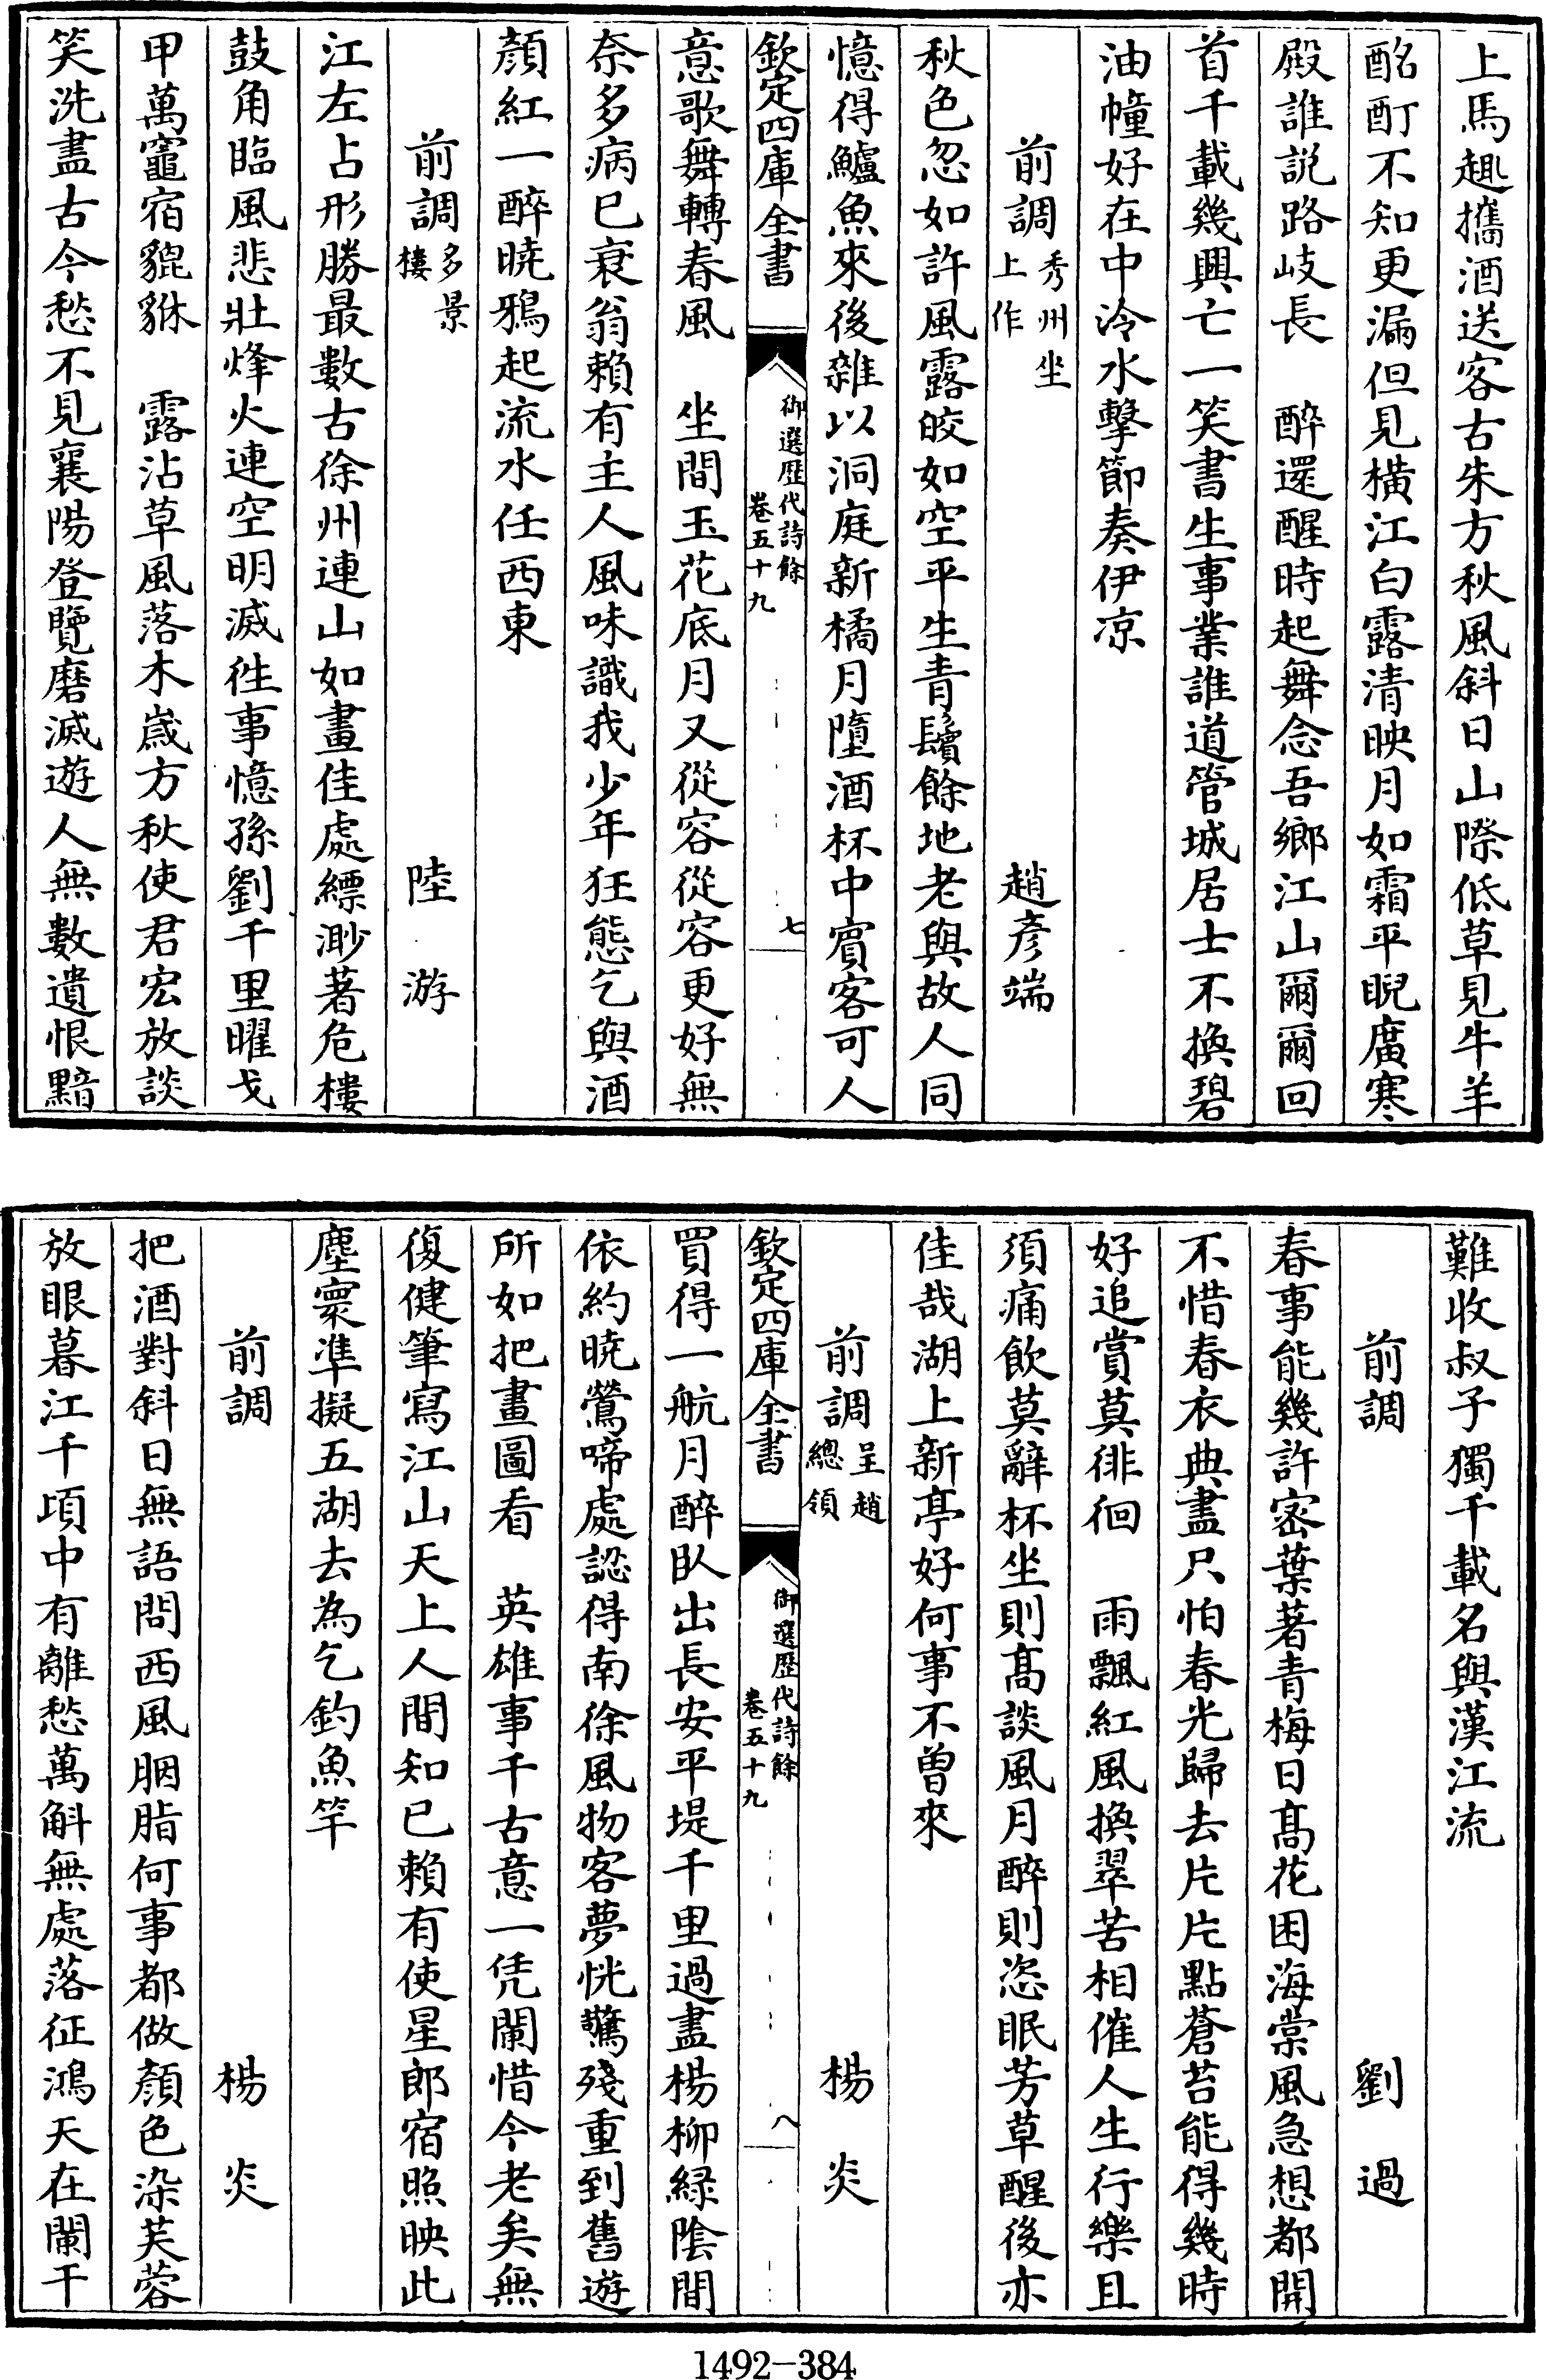 上馬趣攜酒送客古朱方秋風斜日山際低草見牛羊
酩酊不知更漏但見橫江白露清映月如霜平睨廣寒
殿誰説路岐長　醉還醒時起舞念吾鄉江山爾爾回
首千載幾興亡一笑書生事業誰道管城居士不換碧
油幢好在中泠水擊節奏伊凉
前調秀州坐上作　趙彥端
秋色忽如許風露皎如空平生青鬢餘地老與故人同
憶得鱸魚來後雜以洞庭新橘月墮酒杯中賓客可人
欽定四庫全書　御選歷代詩餘　卷五十九　七
意歌舞轉春風　坐間玉花底月又從容從容更好無
奈多病已衰翁賴有主人風味識我少年狂態乞與酒
顏紅一醉曉鴉起流水任西東
前調多景樓　陸游
江左占形勝最數古徐州連山如畫佳處縹渺著危樓
鼓角臨風悲壯烽火連空明滅徃事憶孫劉千里曜戈
甲萬竈宿貔貅　露沾草風落木歲方秋使君宏放談
笑洗盡古今愁不見襄陽登覽磨滅遊人無數遺恨黯
難收叔子獨千載名與漢江流
前調　劉過
春事能幾許密葉著青梅日髙花困海棠風急想都開
不惜春衣典盡只怕春光歸去片片點蒼苔能得幾時
好追賞莫徘徊　雨飄紅風換翠苦相催人生行樂且
須痛飲莫辭杯坐則髙談風月醉則恣眠芳草醒後亦
佳哉湖上新亭好何事不曾來
前調呈趙總領　楊炎
欽定四庫全書　御選歷代詩餘　卷五十九　八
買得一航月醉臥出長安平堤千里過盡楊柳緑陰間
依約曉鶯啼處認得南徐風物客夢恍驚殘重到舊遊
所如把畫圖看　英雄事千古意一凭闌惜今老矣無
復健筆寫江山天上人間知已賴有使星郎宿照映此
塵寰凖擬五湖去為乞釣魚竿
前調　楊炎
把酒對斜日無語問西風胭脂何事都做顏色染芙蓉
放眼暮江千頃中有離愁萬斛無處落征鴻天在闌干
1492-384